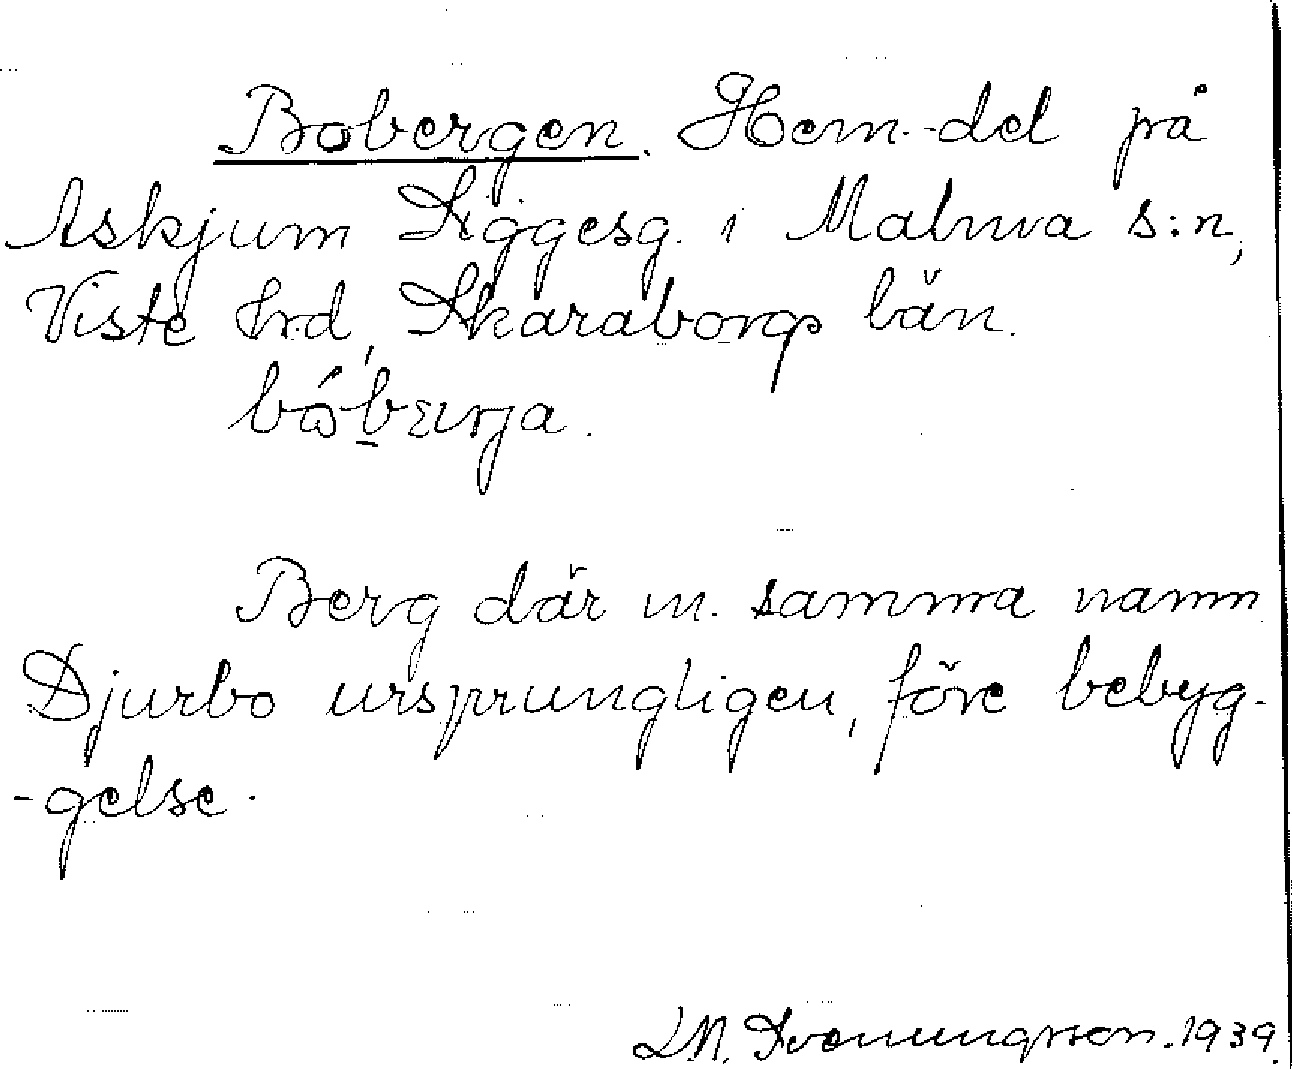 Bobergen. Hem.-del på
Askjum Siggesg. i Malma s:n,
Viste hrd, Skaraborgs län.
Berg där m. samma namn
Djurbo ursprungligen, före bebyg-
-gelse.
LM. Svenungsson. 1939.